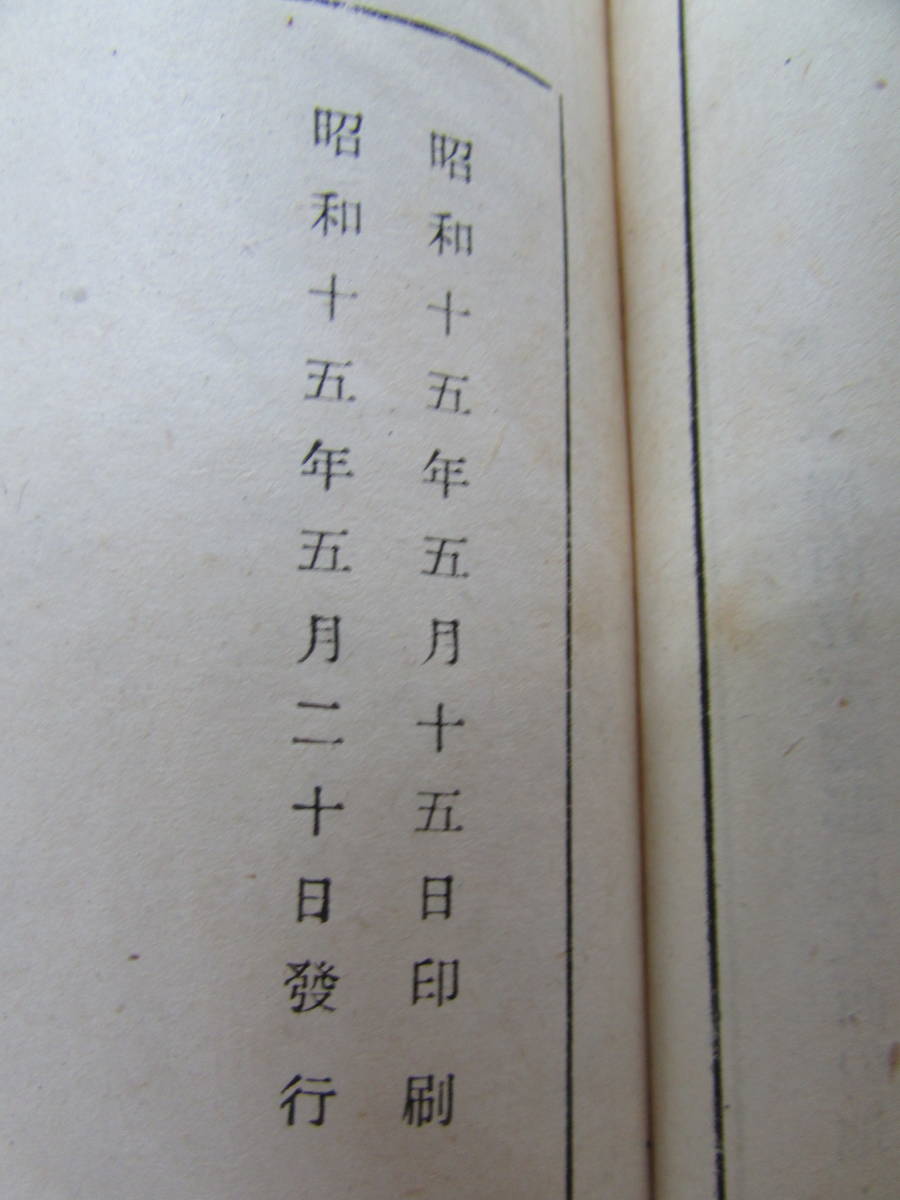 昭和十五年五月十五日印刷
昭和十五年五月二十日發行